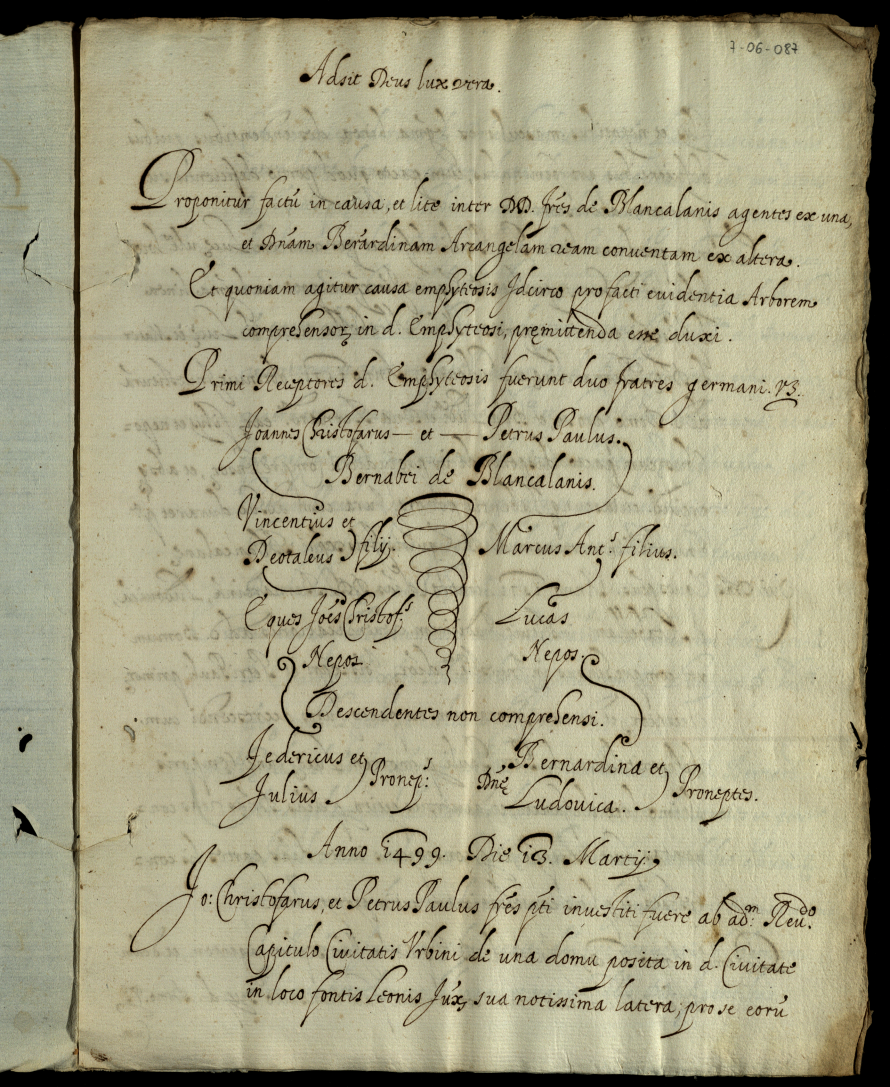 7-06-087
Adsit Deus lux vera.
Proponitur factū in causa, et lite inter DD. frēs de Blancalanis agentes ex una,
et Dnam Berardinam Arcangelam ream conventam ex altera.
Et quoniam agitur causa emphyteosis Idcirco pro facti evidentia Arborem
comprehensor, in d. Emphyteosi, pręmittenda esse duxi.
Primi Receptores d. Emphyteosis fuerunt duo fratres germani. vz.
Joannes Christofarus — et — Petrus Paulus.
Bernabei de Blancalanis.
Vincentius et
Deotaleus filij. Marcus Ant.s filius.
Eques Joēs Christof.s Lucas
Nepos Nepos.
Descendentes non comprehensi.
Federicus et Bernardina et
Julius Pronep.s Dnę Ludovica. Proneptes.
Anno 1499. Die 13. Martij
Jo: Christofarus, et Petrus Paulus frēs pti investiti fuere ab ad.m Reu.do
Capitulo Civitatis Urbini de una domu posita in d. Civitate
in loco fontis Leonis Jux, sua notissima latera, pro se eorū